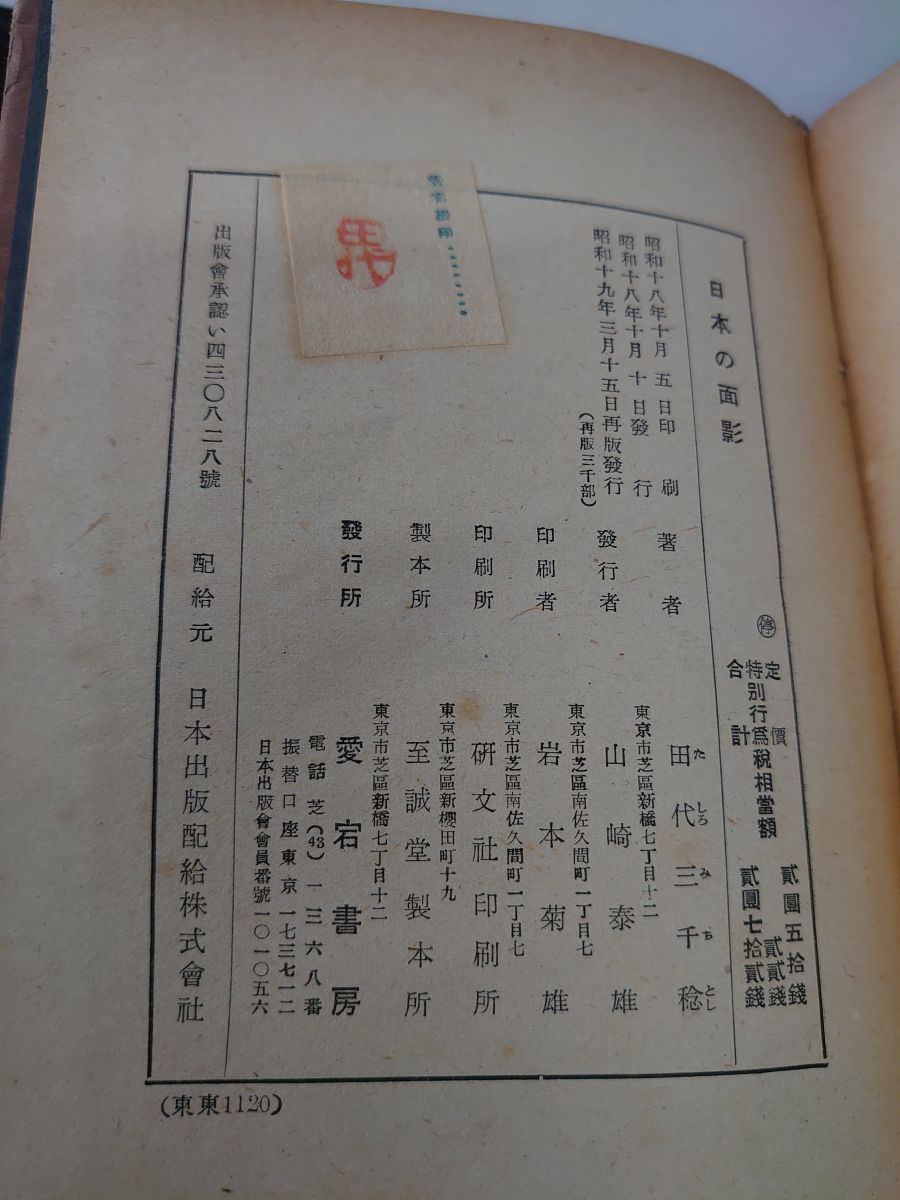 日本の面影
㊡
定價 貳圓五拾錢
特別行爲税相當額 貳貳錢
合計 貳圓七拾貳錢
昭和十八年十月五日印刷
昭和十八年十月十日發行
昭和十九年三月十五日再版發行
(再版三千部)
著者
田代三千稔
たしろみちとし
發行者
東京市芝區新橋七丁目十二
山崎泰雄
印刷者
東京市芝區南佐久間町一丁目七
岩本菊雄
印刷所
東京市芝區南佐久間町一丁目七
研文社印刷所
製本所
東京市芝區新櫻田町十九
至誠堂製本所
發行所
東京市芝區新橋七丁目十二
愛宕書房
電話芝(43)一三六八番
振替口座東京一七三七一二
日本出版會會員番號一〇一〇五六
出版會承認い四三〇八二八號
配給元 日本出版配給株式會社
(東東1120)